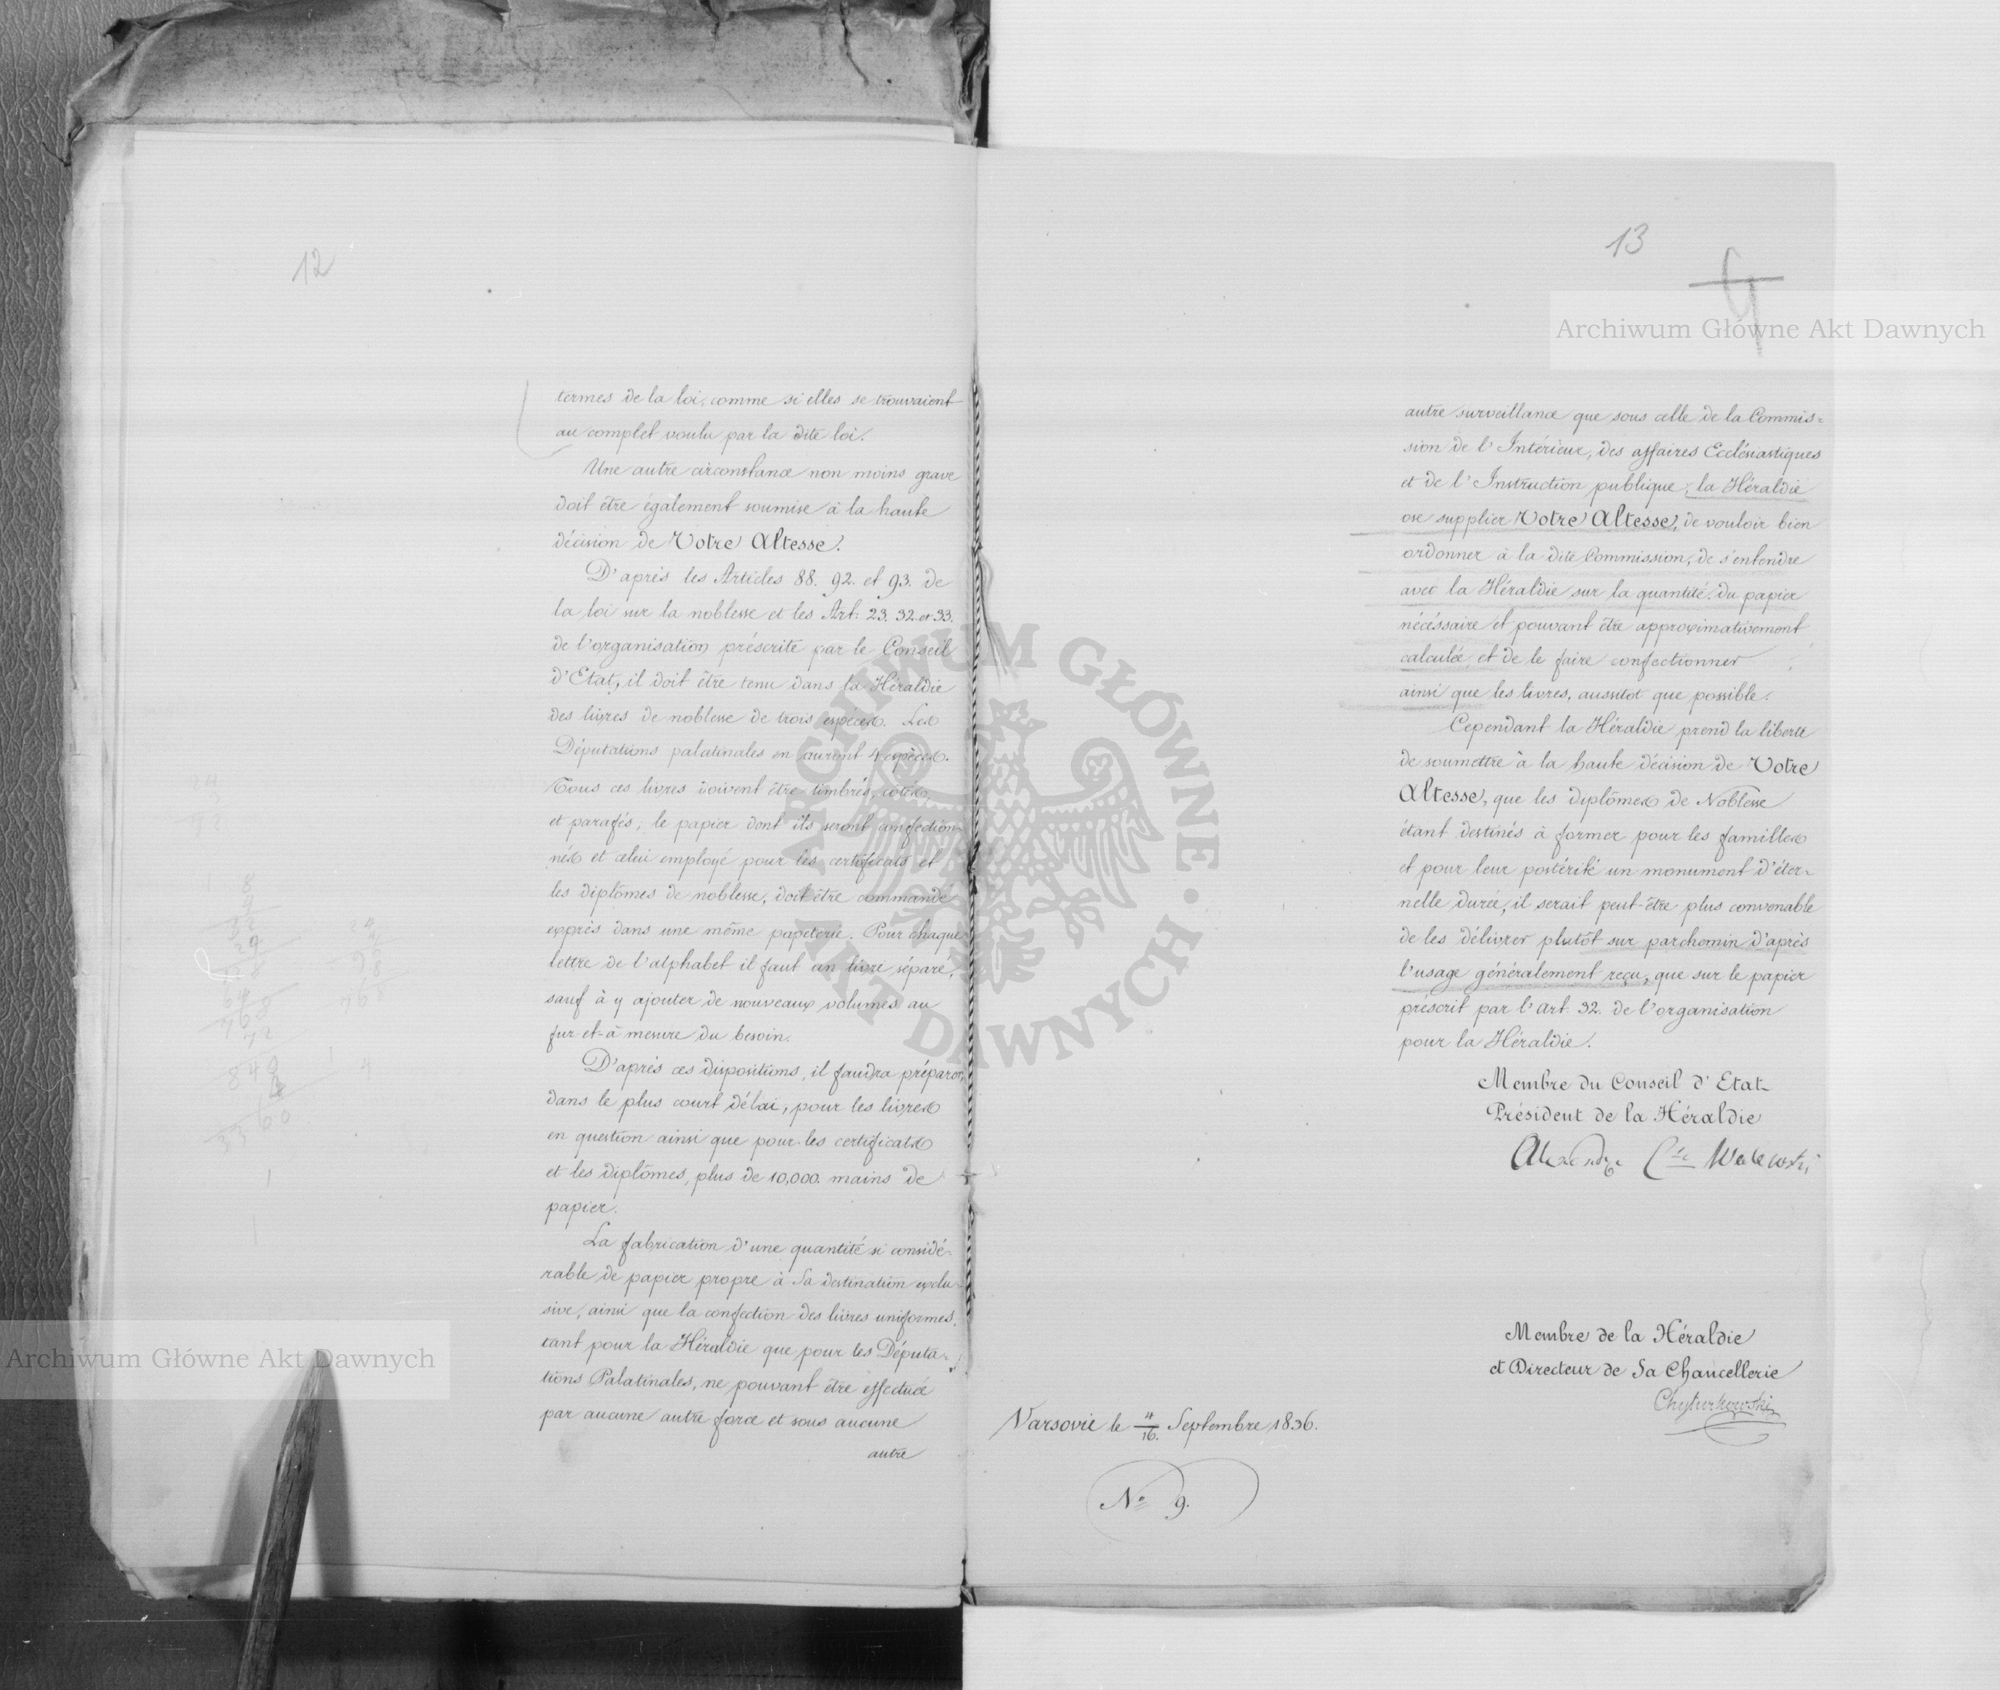 12
termes de la loi, comme si elles se trouvaient
au complet voulu par la dite loi.
Une autre circonstance non moins grave
doit être également soumise à la haute
décision de Votre Altesse.
D'après les Articles 88. 92. et 93. de
la loi sur la noblesse et les Art: 23. 32. et 33.
de l'organisation préscrite par le Conseil
d'Etat, il doit être tenu dans la Héraldie
des livres de noblesse de trois espèces. Les
Députations palatinales en auront 4 espèces.
Tous ces livres doivent être timbrés, cotés
et parafés, le papier dont ils seront confection-
nés et celui employé pour les certificats et
les diplômes de noblesse, doit être commandé
exprès dans une même papeterie. Pour chaque
lettre de l'alphabet il faut un livre séparé,
sauf à y ajouter de nouveaux volumes au
fur et-à mesure du besoin.
D'après ces dispositions, il faudra préparer,
dans le plus court délai, pour les livres
en question ainsi que pour les certificats
et les diplômes, plus de 10,000. mains de
papier.
La fabrication d'une quantité si considé-
rable de papier propre à sa destination exclu-
sive, ainsi que la confection des livres uniformes,
tant pour la Héraldie que pour les Députa-
tions Palatinales, ne pouvant être effectuée
par aucune autre force et sous aucune
autre
13
autre surveillance que sous celle de la Commis=
sion de l'Intérieur, des affaires Ecclésiastiques
et de l'Instruction publique, la Héraldie
ose supplier Votre Altesse, de vouloir bien
ordonner à la dite Commission, de s'entendre
avec la Héraldie sur la quantité du papier
nécéssaire et pouvant être approximativement
calculée, et de le faire confectionner
ainsi que les livres, aussitot que possible.
Cependant la Héraldie prend la liberté
de soumettre à la haute décision de Votre
Altesse, que les diplômes de Noblesse
étant destinés à former pour les familles
et pour leur postérité un monument d'éter-
nelle durée, il serait peut-être plus convenable
de les délivrer plutôt sur parchemin d'après
l'usage généralement reçu, que sur le papier
préscrit par l'Art. 32. de l'organisation
pour la Héraldie.
Membre du Conseil d'Etat
Président de la Héraldie
Membre de la Héraldie
et Directeur de Sa Chancellerie
Varsovie le 4/16. Septembre 1836.
No 9.
Archiwum Główne Akt Dawnych
Archiwum Główne Akt Dawnych
ARCHIWUM GŁÓWNE · AKT DAWNYCH ·